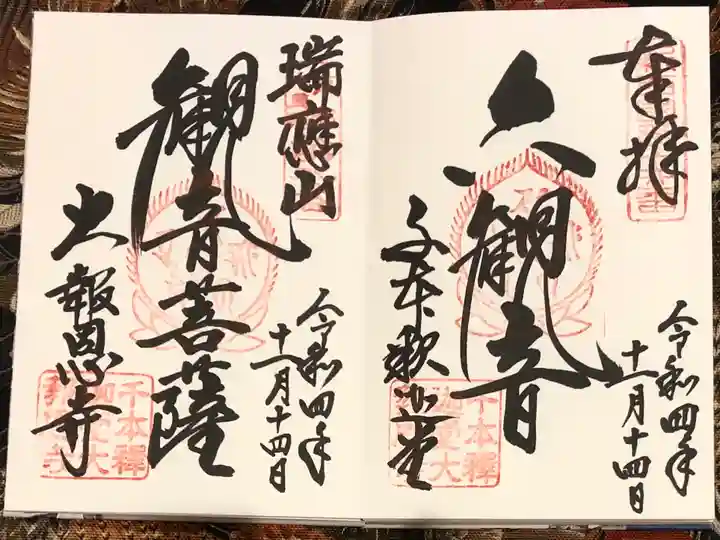 奉拝
六観音
千本釈迦堂
令和四年
十一月十四日
千本釋
迦堂大
瑞應山
観音菩薩
大報恩寺
令和四年
十一月十四日
千本釋
迦堂大
報恩寺